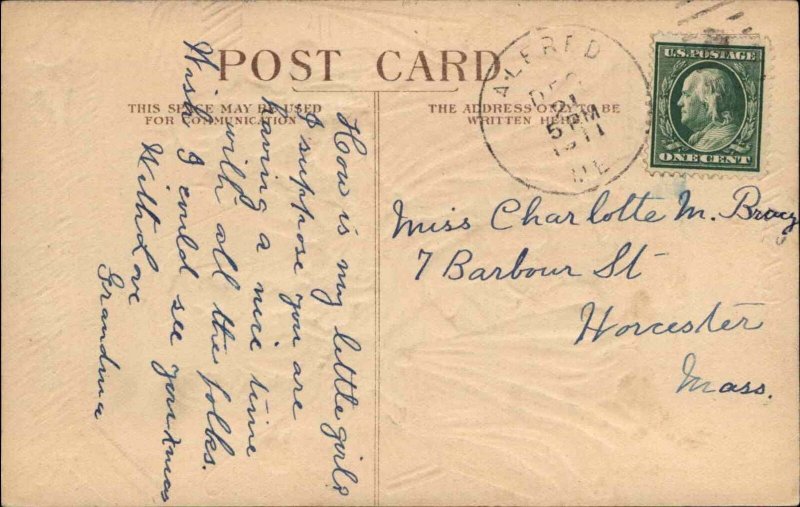 POST CARD
THIS SPACE MAY BE USED
FOR COMMUNICATION
THE ADDRESS ONLY TO BE
WRITTEN HERE
ALFRED
DEC
21
5 PM
1911
ME
U.S. POSTAGE
ONE CENT
How is my little girl?
I suppose you are
having a nice time
with all the folks.
Wish I could see you Xmas
With Love
Grandma
Miss Charlotte M.
7 Barbour St
Worcester
Mass.